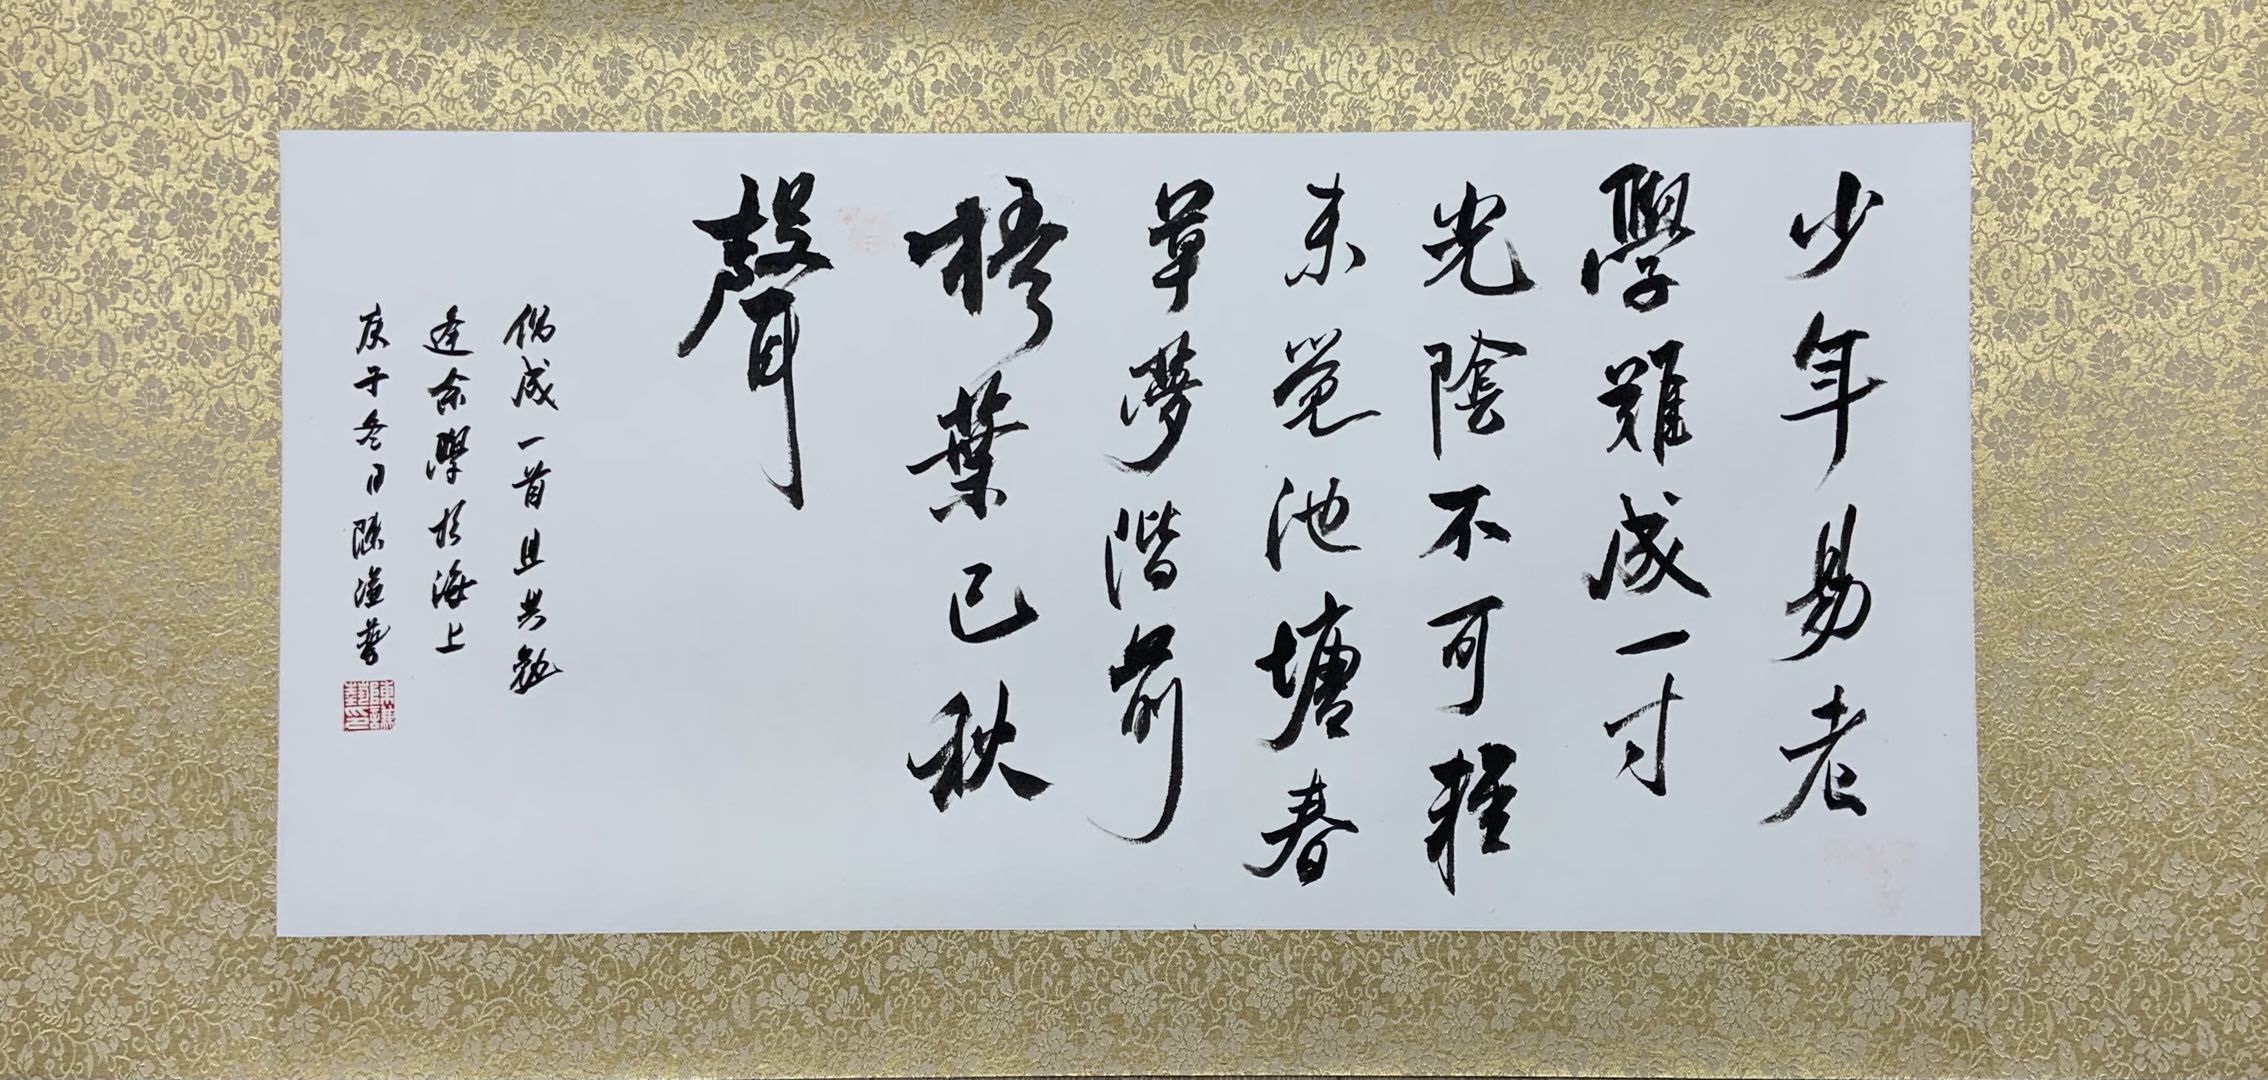 少年易老
學難成一寸
光陰不可輕
未覺池塘春
草夢階前
梧葉已秋
聲
偶成一首且共勉
逢余學於海上
庚子冬日陳謹藝